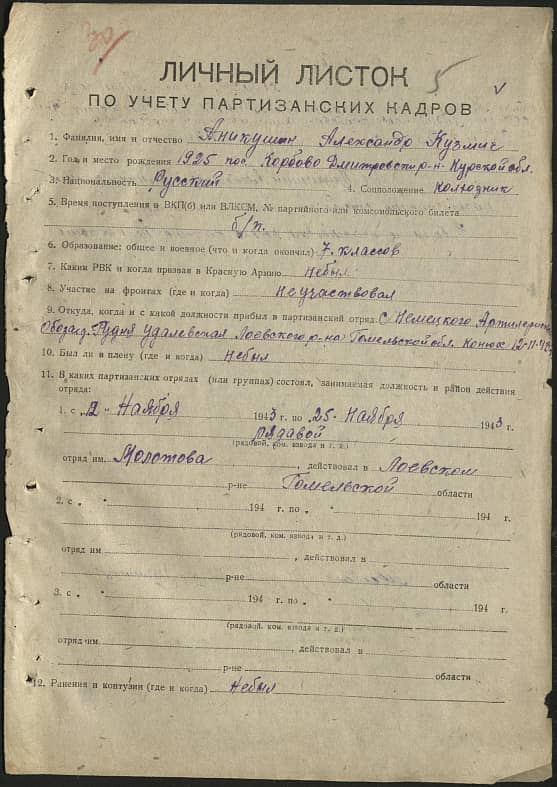 5
ЛИЧНЫЙ ЛИСТОК
ПО УЧЕТУ ПАРТИЗАНСКИХ КАДРОВ
1. Фамилия, имя и отчество Аникушин Александр Кузмич
2. Год и место рождения 1925 пос. Корбово Дмитровский р-н Курской обл.
3. Национальность Русский 4. Соцположение Колхозник
5. Время поступления в ВКП(б) или ВЛКСМ, № партийного или комсомольского билета
б/п.
6. Образование: общее и военное (что и когда окончил) 7 классов
7. Каким РВК и когда призван в Красную Армию не был
8. Участие на фронтах (где и когда) не участвовал
9. Откуда, когда и с какой должности прибыл в партизанский отряд: с Немецкого Артилерии
Рудня Удалевская Лоевского р-на Гомельской обл. Конюх 12-11-43
10. Был ли в плену (где и когда) не был
11. В каких партизанских отрядах (или группах) состоял, занимаемая должность и район действия
отряда:
1. с „12„ Ноября 1943 г. по „25„ Ноября 1943 г.
рядавой
(рядовой, ком. взвода и т. д.)
отряд им. Молотова, действовал в Лоевском
р-не Гомельской области
2. с „ „ 194 г. по „ „ 194 г.
(рядовой, ком. взвода и т. д.)
отряд им, действовал в
р-не области
3. с „ „ 194 г. по „ „ 194 г.
(рядовой, ком. взвода и т. д.)
отряд им., действовал в
р-не области
12. Ранения и контузии (где и когда) не был